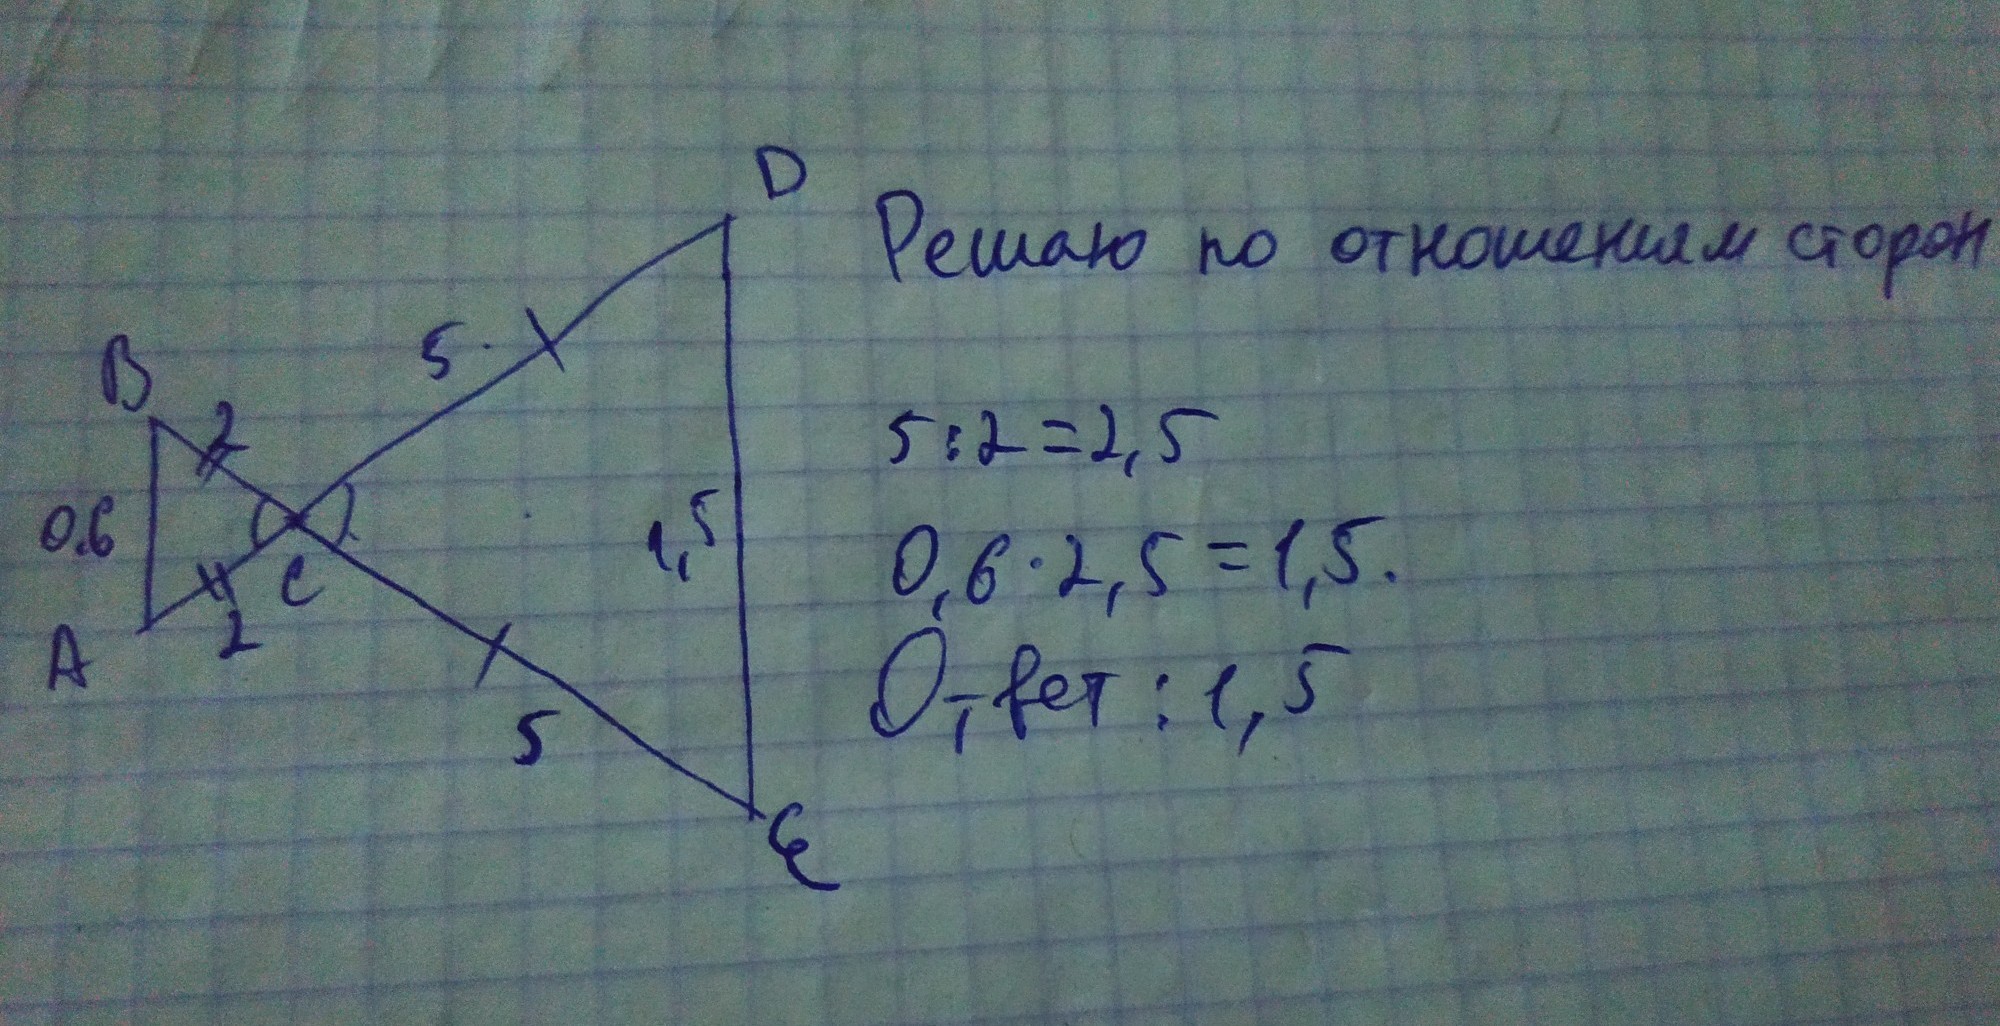 D
Решаю по отношениям сторон
B
2
5
5:2=2,5
0.6
1,5
0,6·2,5=1,5.
C
A
2
Ответ: 1,5
5
E